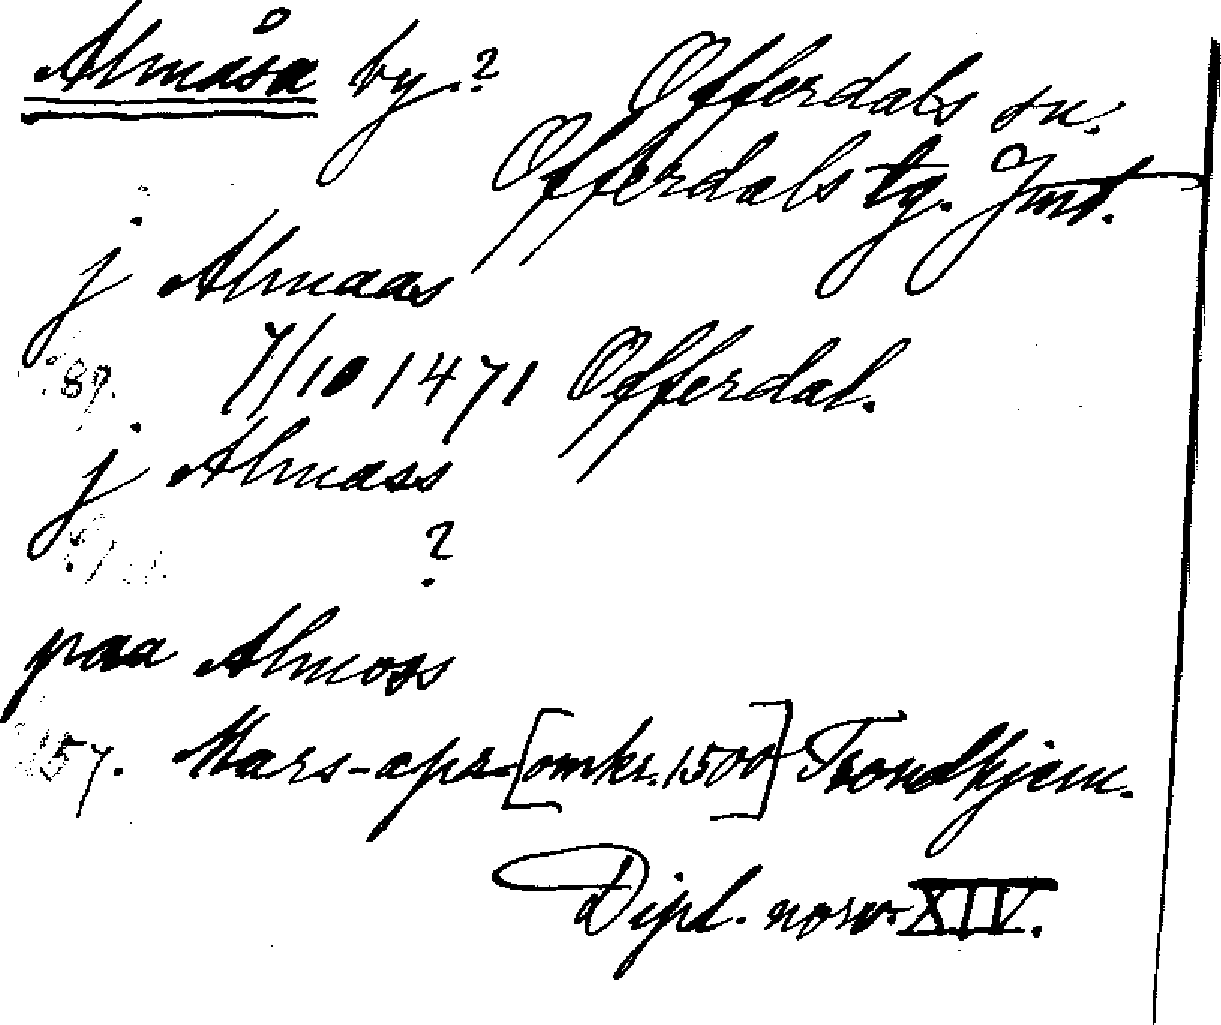 Almåsa by.? Offerdals sn.
Offerdals tg. Jmt.
j Almaas
89. 7/10 1471 Offerdal.
j Almass
?
paa Almoss
157. Mars-apr. [omkr. 1500] Trondhjem.
Dipl. norv. XIV.